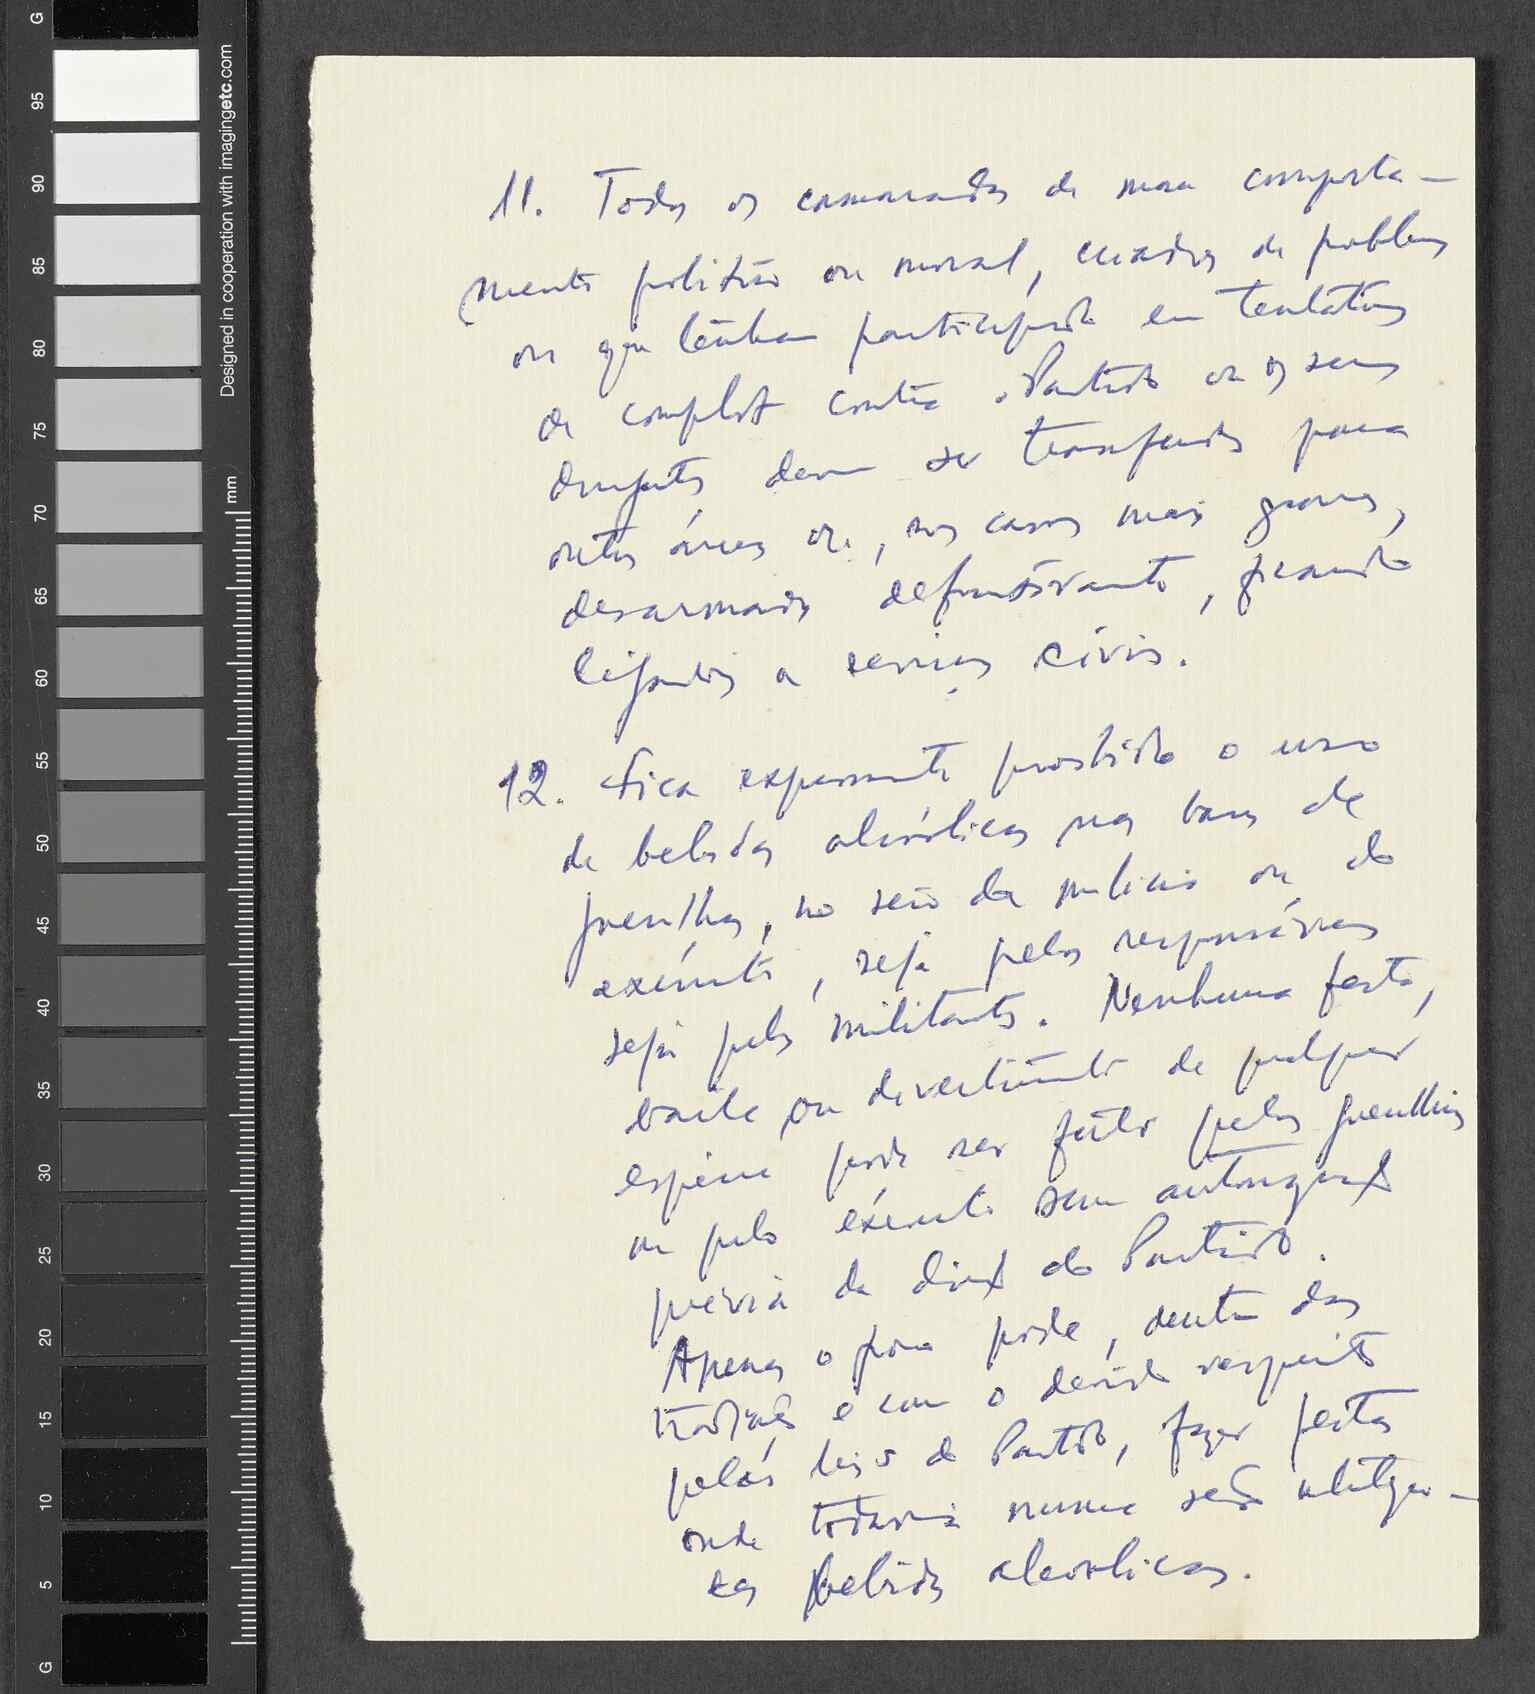 G
95
90
85
80
75
70
65
60
55
50
45
40
35
30
25
20
15
10
5
G
Designed in cooperation with imagingetc.com
mm
11. Todos os camaradas de mau comporta-
mento político ou moral, criados de problemas
ou que tenham participado em tentativas
de complot contra o Partido ou os seus
dirigentes devem ser transferidos para
outras áreas ou, nos casos mais graves,
desarmados definitivamente, ficando
ligados a serviços civis.
12. Fica expressamente proibido o uso
de bebidas alcoólicas nas bases de
guerrilha, no seio da milícia ou do
exército, seja pelos responsáveis
seja pelos militantes. Nenhuma festa,
baile ou divertimento de qualquer
espécie pode ser feito pelos guerrilheiros
ou pelo exército sem autorização
prévia da dirç do Partido.
Apenas o povo pode, dentro das
tradições e com o devido respeito
pelas leis do Partido, fazer festas
onde todavia nunca serão utiliza-
das bebidas alcoolicas.